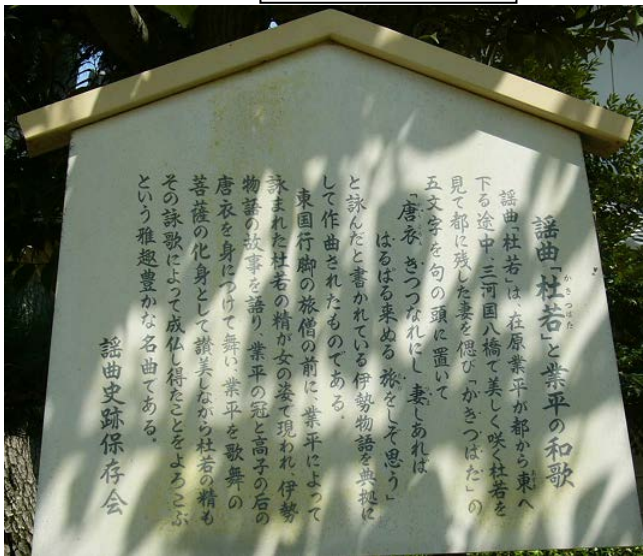 謡曲「杜若」と業平の和歌
かきつばた
謡曲「杜若」は、在原業平が都から東へ
下る途中、三河国八橋で美しく咲く杜若を
見て都に残した妻を偲び「かきつばた」の
五文字を句の頭に置いて
「唐衣 きつつなれにし 妻しあれば
はるばる来ぬる 旅をしぞ思う」
と詠んだと書かれている伊勢物語を典拠に
して作曲されたものである。
東国行脚の旅僧の前に、業平によって
詠まれた杜若の精が女の姿で現われ、伊勢
物語の故事を語り、業平の冠と高子の后の
唐衣を身につけて舞い、業平を歌舞の
菩薩の化身として讃美しながら杜若の精も
その詠歌によって成仏し得たことをよろこぶ
という雅趣豊かな名曲である。
謡曲史跡保存会